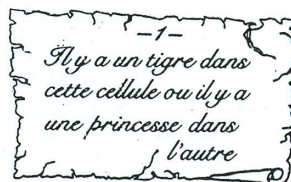 – 1 –
Il y a un tigre dans
cette cellule ou il y a
une princesse dans
l'autre